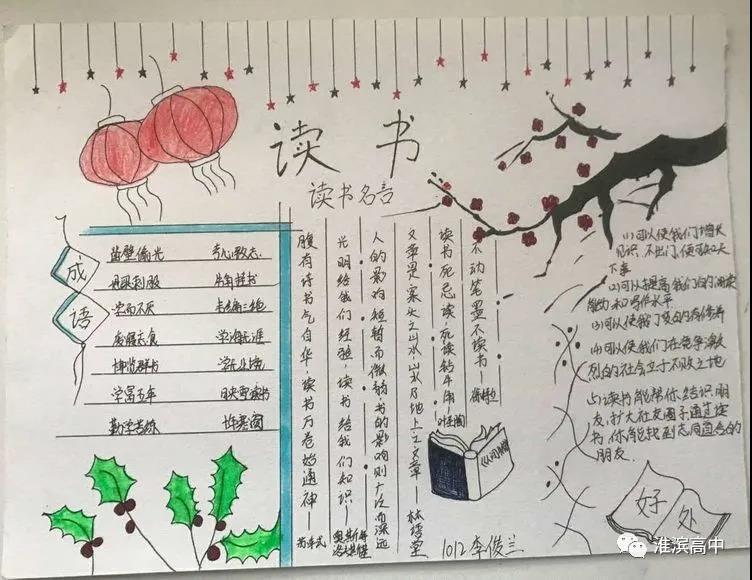 读书
读书名言
成语
凿壁偷光 专心致志
手不释卷 牛角挂书
学而不厌 韦编三绝
发愤忘食 学海无涯
博览群书 学无止境
学富五车 映雪读书
勤学苦练
腹有诗书气自华，读书万卷始通神——苏轼
光明给我们经验，读书给我们知识——奥斯特洛夫斯基
人的影响短暂而微弱，书的影响则广泛而深远
文章是案头之山水，山水乃地上之文章——林语堂
读书死忌读，死读钻牛角——叶圣陶
不动笔墨不读书——徐特立
(1)可以使我们增长
见识，不出门，便可知天
下事
(2)可以提高我们的阅读
能力和写作水平
(3)可以使我们变的有修养
(4)可以使我们在竞争激
烈的社会立于不败之地
(5)读书能帮你结识朋
友，扩大社交圈子通过读
书，你能找到志同道合的
朋友.
好处
1012李俊兰
淮滨高中